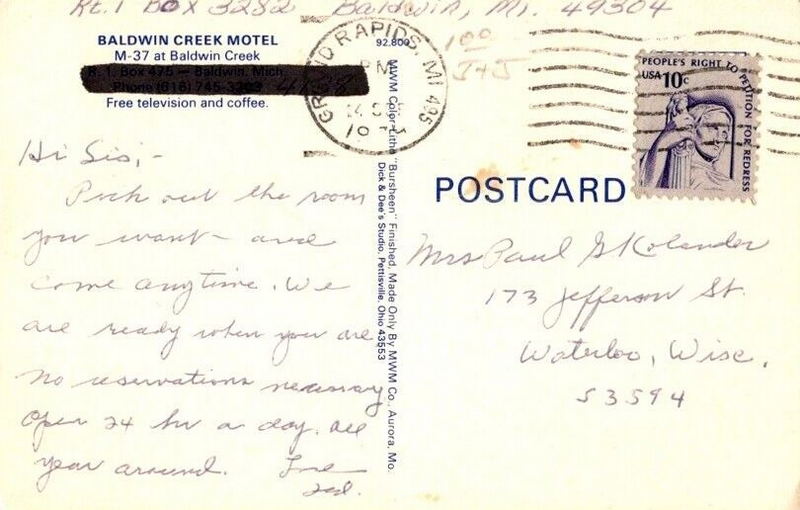 Rt. 1 Box 3282 Baldwin, Mi. 49304
BALDWIN CREEK MOTEL
M-37 at Baldwin Creek
R. 1, Box 475 — Baldwin, Mich.
Phone (616) 745-
Free television and coffee.
Hi Sis,-
Pick out the room
you want - and
come anytime. We
are ready when you are
No reservations necessary
Open 24 hr a day. all
year around. Love
Ted.
92,800
MWM Color-Litho "Bursheen" Finished, Made Only By MWM Co., Aurora, Mo.
Dick & Dee's Studio, Pettisville, Ohio 43553
GRAND RAPIDS, MI 495
PM
PEOPLE'S RIGHT TO PETITION FOR REDRESS
USA 10c
POSTCARD
Mrs Paul G Kolander
173 Jefferson St.
Waterloo, Wisc.
53594